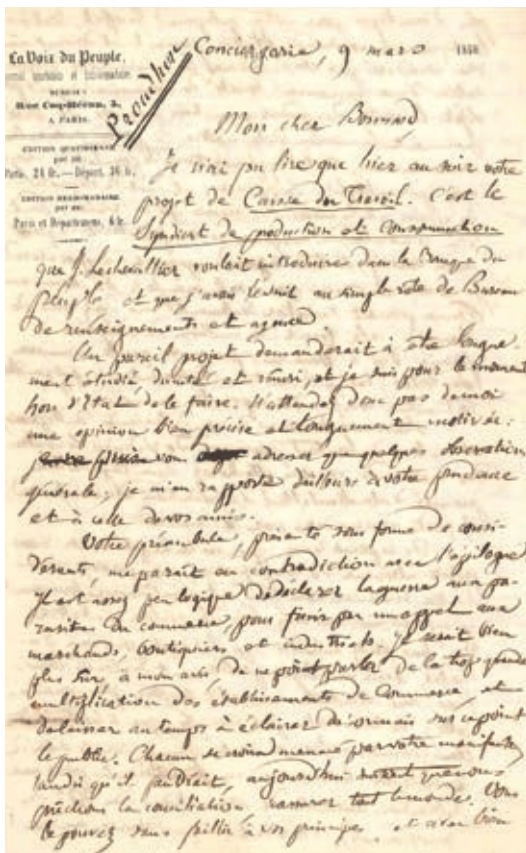 La Voix du Peuple,
BUREAUX
Rue Coq-Héron, 5,
A PARIS.
EDITION QUOTIDIENNE
Paris, 24 fr. — Départ. 36 fr.
Paris et Départemens, 6 fr.
Proudhon
Conciergerie, 9 mars 18
Mon cher
Je n'ai pu lire que hier au soir votre
projet de Caisse du Travail. C'est le
Syndicat de production et consommation
que J. Lechevallier voulait introduire dans la Banque du
peuple et que j'avais réduit au simple rôle de Bureau
de renseignements et agence.
Un pareil projet demanderait à être longue-
ment étudié, discuté et et je suis pour le moment
hors d'état de le faire. N'attendez donc pas de moi
une opinion bien précise et longuement motivée :
vous adresser que quelques observations
générales ; je m'en rapporte d'ailleurs à votre prudence
et à celle de vos amis.
Votre préambule, présenté sous forme de consi-
dérants, me paraît en contradiction avec l'épilogue.
Il est assez peu logique de déclarer la guerre aux pa-
rasites du commerce, pour finir par un appel aux
marchands, boutiquiers et industriels. Il serait bien
plus sûr, à mon avis, de ne point parler de la trop grande
multiplication des établissements de commerce, et
de laisser au temps à éclairer désormais sur ce point
le public. Chacun se croira menacé par votre manifeste,
tandis qu'il faudrait, aujourd'hui que nous
prêchons la conciliation rassurer tout le monde. Vous
le pouvez sans faillir à vos principes, et avec bien